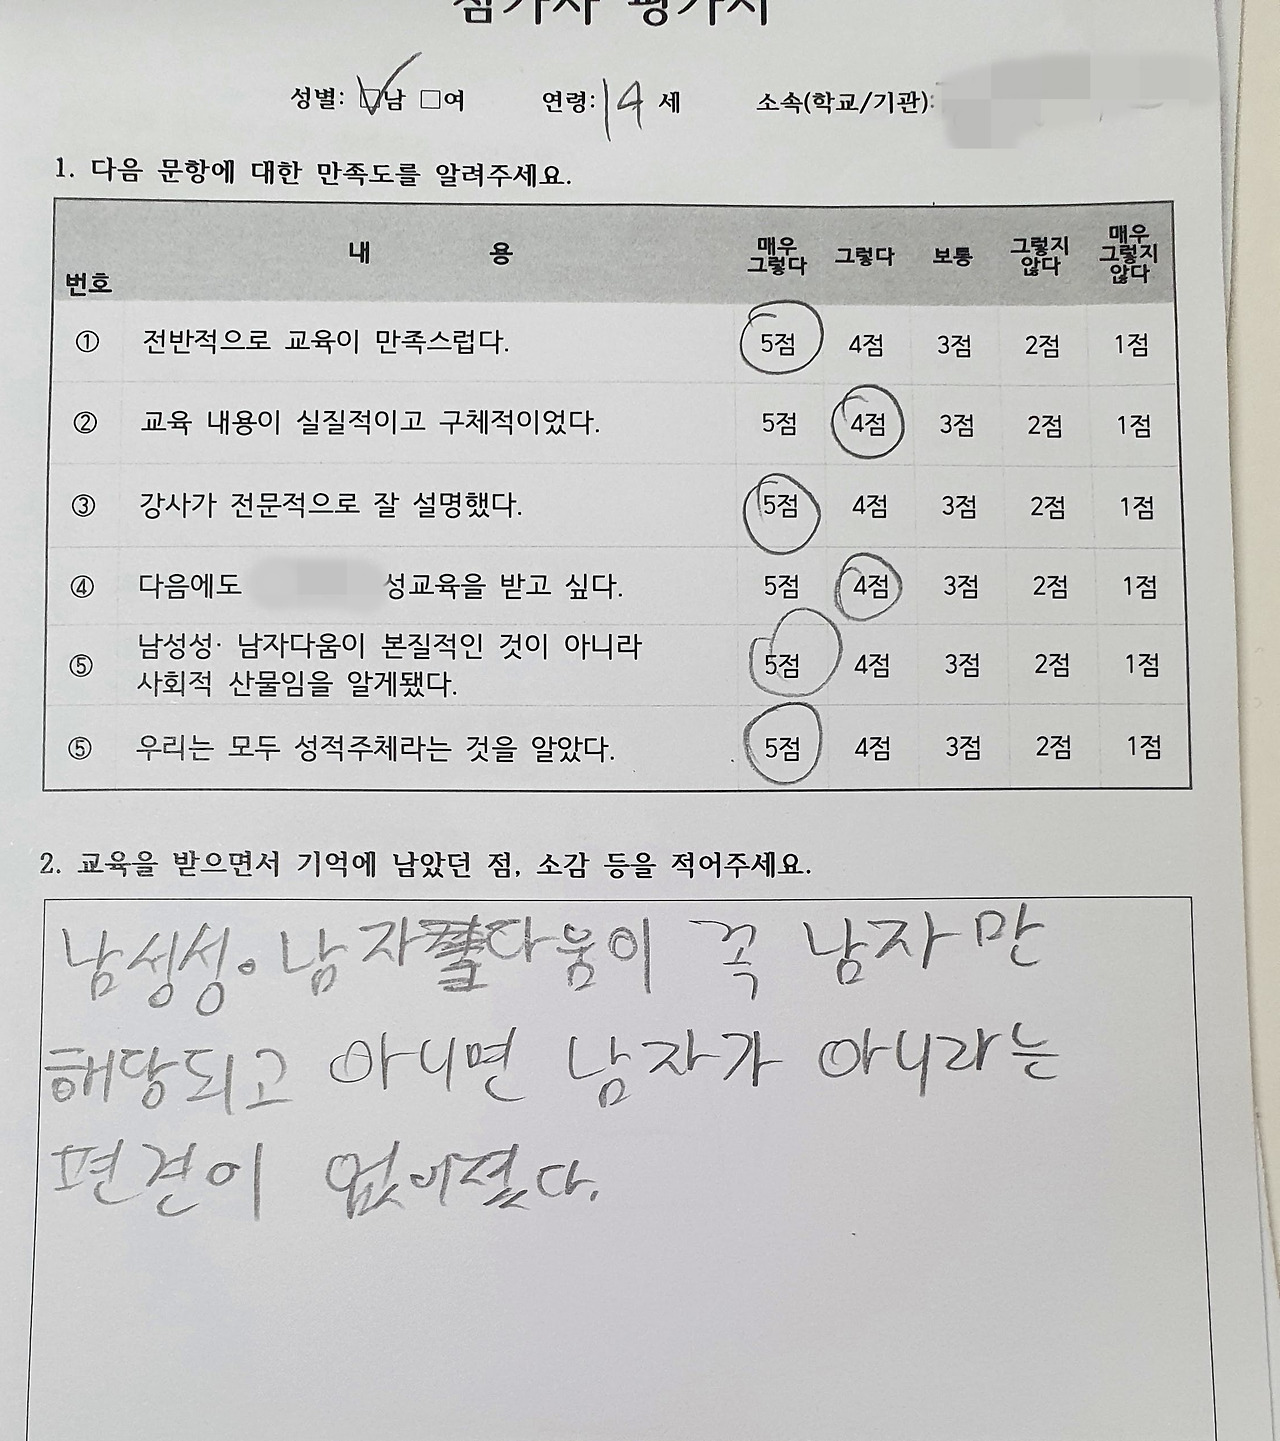 참가자 평가서
성별: □남 □여 연령: 14 세 소속(학교/기관):
1. 다음 문항에 대한 만족도를 알려주세요.
번호 내 용 매우 그렇다 그렇다 보통 그렇지 않다 매우 그렇지 않다
① 전반적으로 교육이 만족스럽다. 5점 4점 3점 2점 1점
② 교육 내용이 실질적이고 구체적이었다. 5점 4점 3점 2점 1점
③ 강사가 전문적으로 잘 설명했다. 5점 4점 3점 2점 1점
④ 다음에도 성교육을 받고 싶다. 5점 4점 3점 2점 1점
⑤ 남성성· 남자다움이 본질적인 것이 아니라
사회적 산물임을 알게됐다. 5점 4점 3점 2점 1점
⑤ 우리는 모두 성적주체라는 것을 알았다. 5점 4점 3점 2점 1점
2. 교육을 받으면서 기억에 남았던 점, 소감 등을 적어주세요.
남성성. 남자다움이 꼭 남자만
해당되고 아니면 남자가 아니라는
편견이 없어졌다.